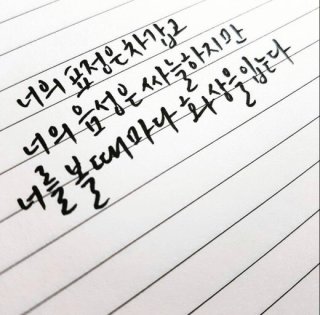 너의 표정은 차갑고
너의 음성은 싸늘하지만
너를 볼 때마다 화상을 입는다